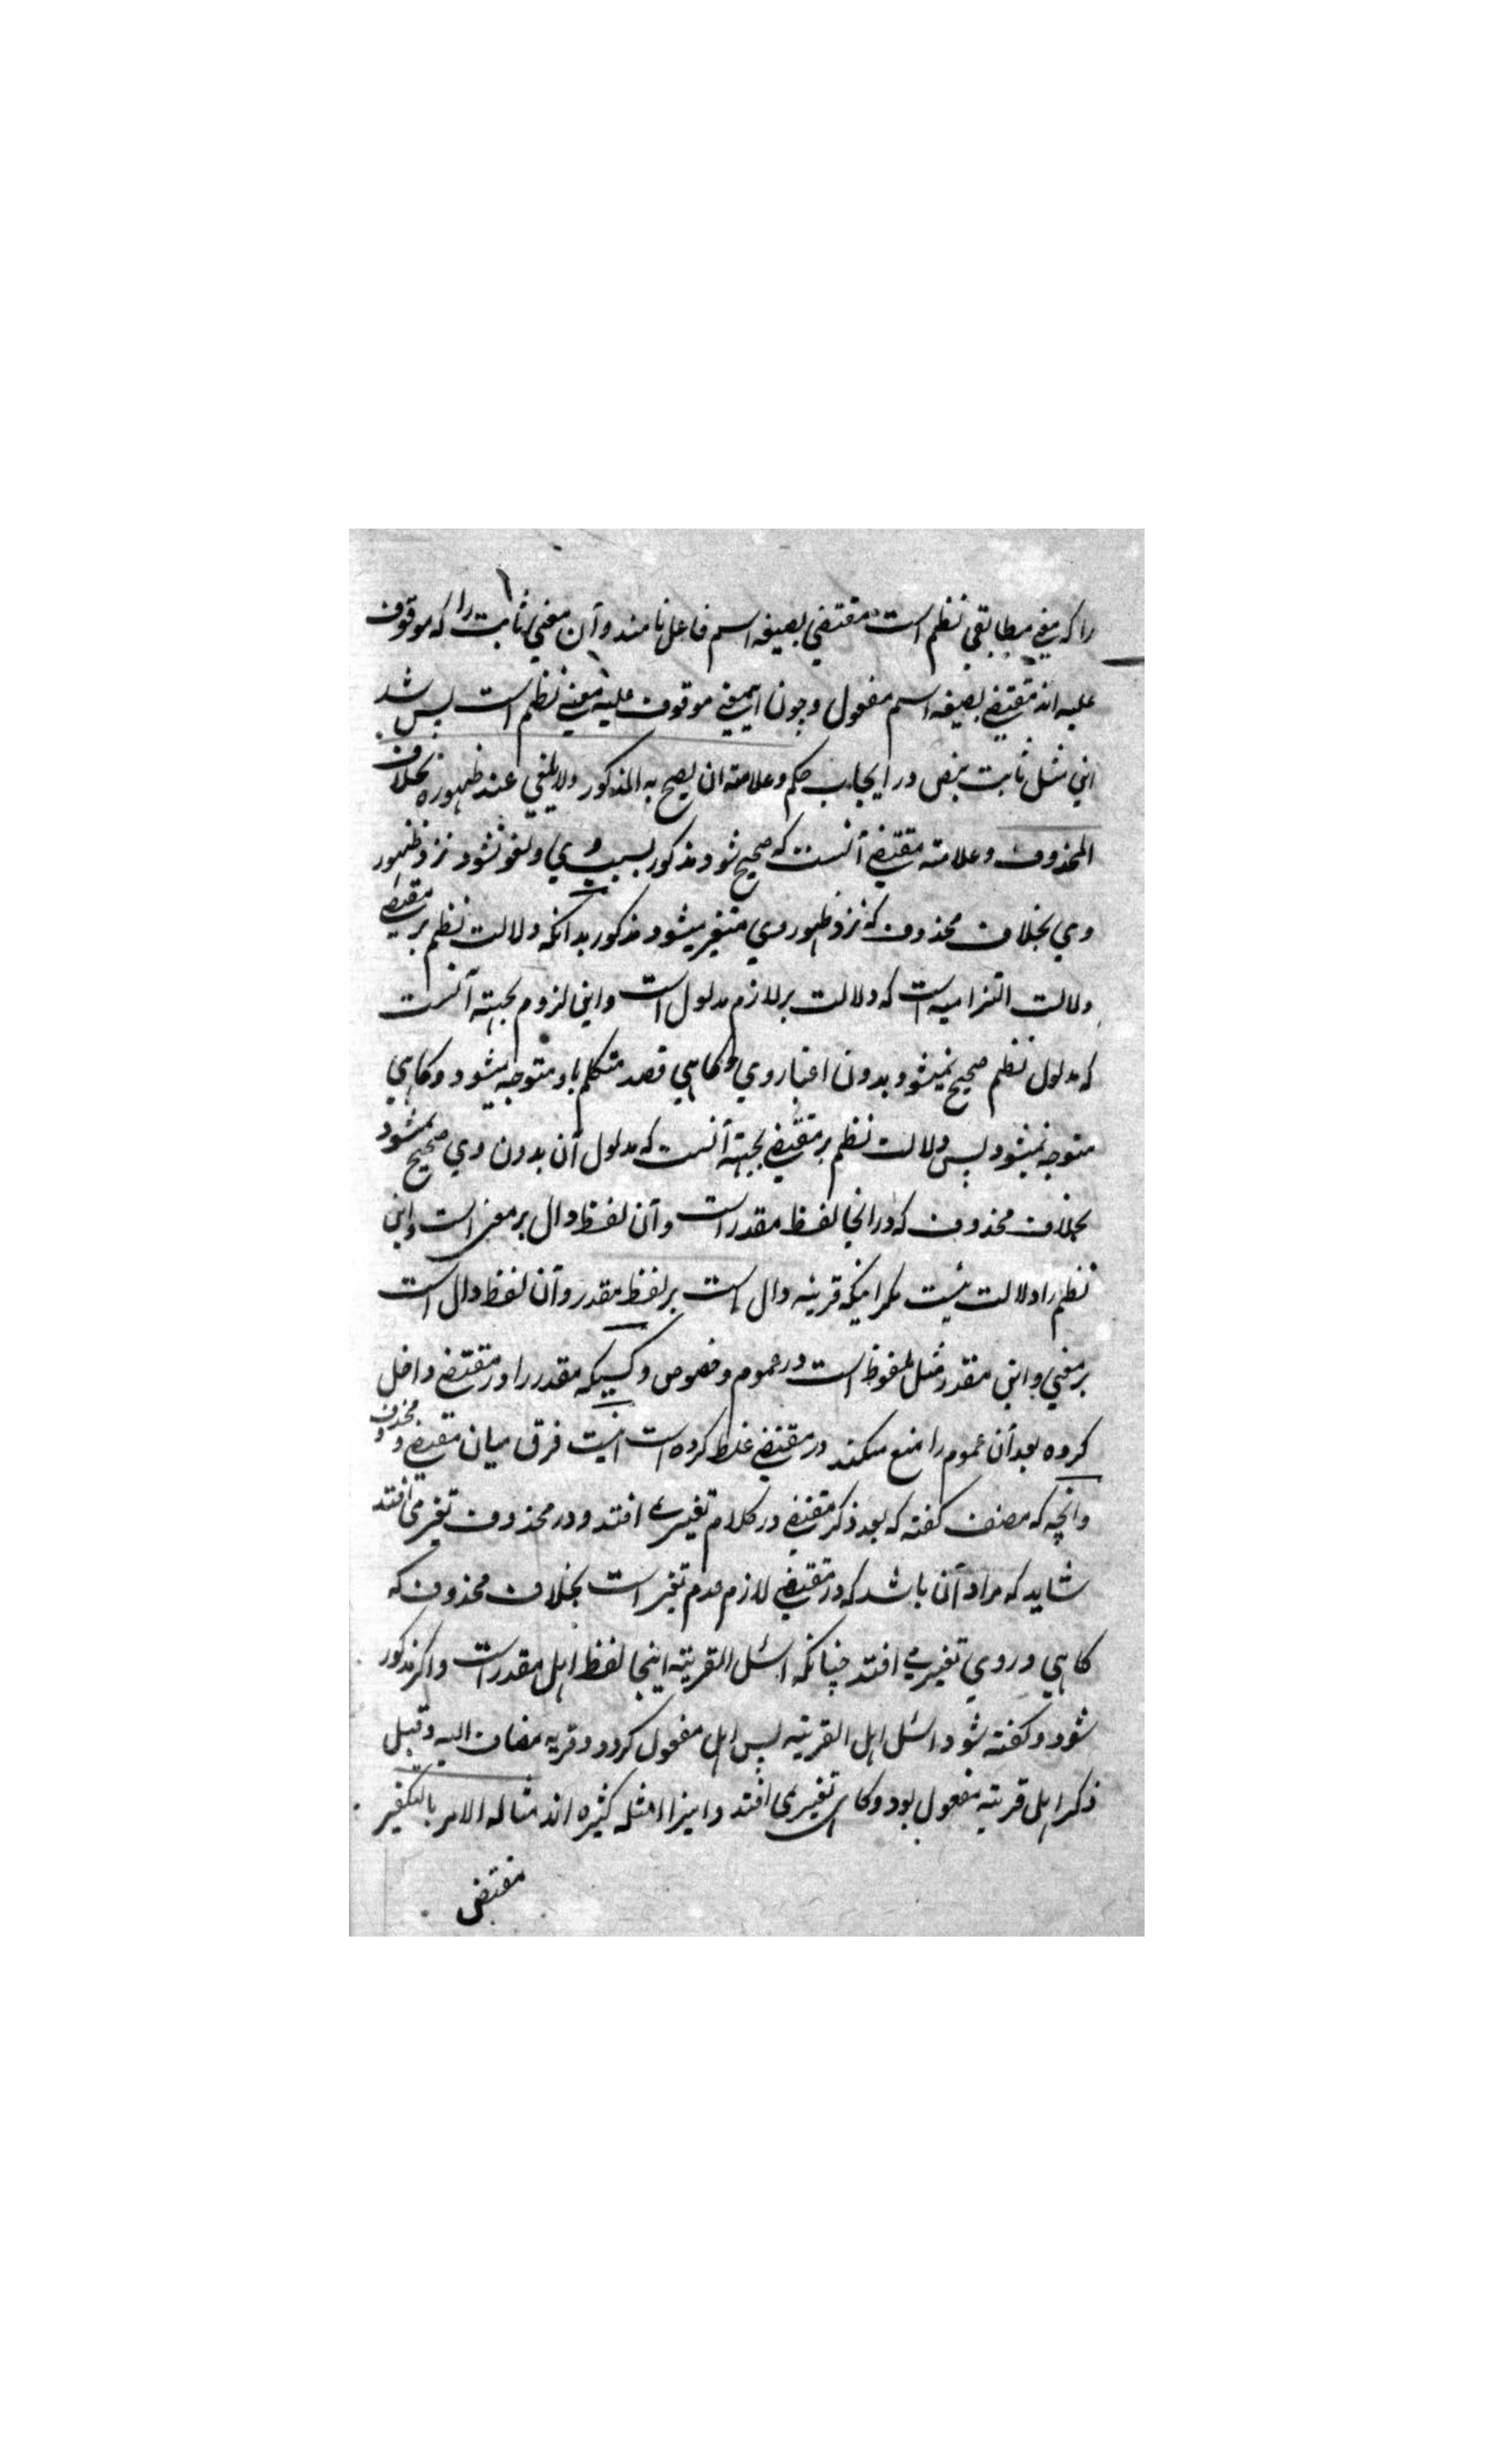 را که معنی مطابقی نظم است مقتضی بصیغه اسم فاعل نامند و آن معنی ثابت را که موقوف
علیه اند مقتضی بصیغه اسم مفعول و چون این معنی موقوف علیه معنی نظم است پس شد
این مثل ثابت بنص در ایجاب حکم و علامته ان یصح به المذکور ولا یلغی عند ظهوره بخلاف
المحذوف و علامته مقتضی آنست که صحیح شود مذکور بسبب وی و لغو نشود نزد ظهور
وی بخلاف محذوف که نزد ظهور وی متغیر میشود مذکور بدانکه دلالت نظم بر مقتضی
دلالت التزامیه است که دلالت بر لازم مدلول است و این لزوم بجهته آنست
که مدلول نظم صحیح نمیشود بدون اعتبار وی و گاهی قصد متکلم باو متوجه میشود و گاهی
متوجه نمیشود پس دلالت نظم بر مقتضی بجهته آنست که مدلول آن بدون وی صحیح نمیشود
بخلاف محذوف که در انجا لفظ مقدر است و آن لفظ دال بر معنی است و این
نظم را دلالت نیست مگر اینکه قرینه دال است بر لفظ مقدر و آن لفظ دال است
بر معنی و این مقدر مثل ملفوظ است در عموم و خصوص و کسیکه مقدر را در مقتضی داخل
کرده بعد آن عموم را منع میکند در مقتضی غلط کرده است اینست فرق میان مقتضی و محذوف
و انچه که مصنف گفته که بعد ذکر مقتضی در کلام تغیری افتد و در محذوف تغیر می افتد
شاید که مراد آن باشد که در مقتضی لازم عدم تغیر است بخلاف محذوف که
گاهی در وی تغیر می افتد چنانکه اسئل القریته اینجا لفظ اهل مقدر است و اگر مذکور
شود و گفته شود اسئل اهل القریته پس اهل مفعول گردد و قریه مضاف الیه و قبل
ذکر اهل قریته مفعول بود و گاهی تغیر می افتد و اینرا امثله کثیره اند مثاله الامر بالتکفیر
مقتضی